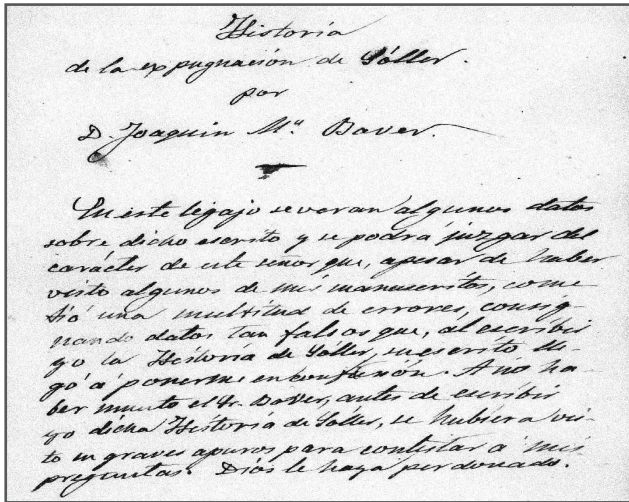 Historia
de la expugnación de Sóller.
por
D. Joaquin Mª. Bover.
En este legajo se veran algunos datos
sobre dicho escrito y se podrá juzgar del
carácter de este señor que, apesar de haber
visto algunos de mis manuscritos, come
tió una multitud de errores, consig
nando datos tan falsos que, al escribir
yo la Historia de Sóller, su escrito lle-
gó á ponerme en confusion. A no ha-
ber muerto el Sr. Bover, antes de escribir
yo dicha Historia de Sóller, se hubiera vis-
to en graves apuros para contestar á mis
preguntas. Dios le haya perdonado.